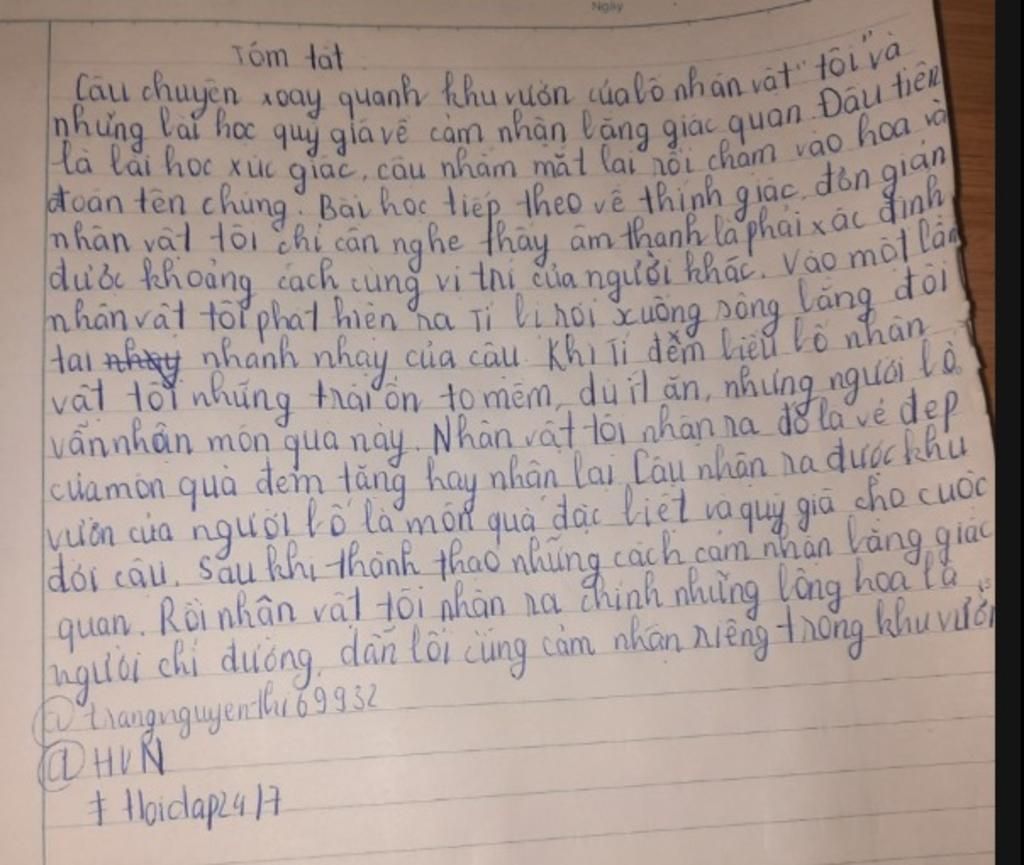 Ngày
Tóm tắt
Câu chuyện xoay quanh khu vườn của bố nhân vật "tôi" và
những bài học quý giá về cảm nhận bằng giác quan Đầu tiên
là bài học xúc giác, cậu nhắm mắt lại rồi chạm vào hoa và
đoán tên chúng. Bài học tiếp theo về thính giác, đơn giản
nhân vật tôi chỉ cần nghe thấy âm thanh là phải xác định
được khoảng cách cùng vị trí của người khác. Vào một lần
nhân vật tôi phát hiện ra Tí bị rơi xuống sông bằng đôi
tai nhanh nhạy của cậu. Khi Tí đếm biếu bố nhân
vật tôi những trái ổn to mềm, dù ít ăn, nhưng người bố
vẫn nhận món quà này. Nhân vật tôi nhận ra đó là vẻ đẹp
của món quà đem tặng hay nhận lại. Cậu nhận ra được khu
vườn của người bố là món quà đặc biệt và quý giá cho cuộc
đời cậu. Sau khi thành thạo những cách cảm nhận bằng giác
quan. Rồi nhân vật tôi nhận ra chính những bông hoa là
người chỉ đường, dẫn lối cùng cảm nhận riêng trong khu vườn
@ trangnguyenthi69932
@ HVN
# Hoidap24/7